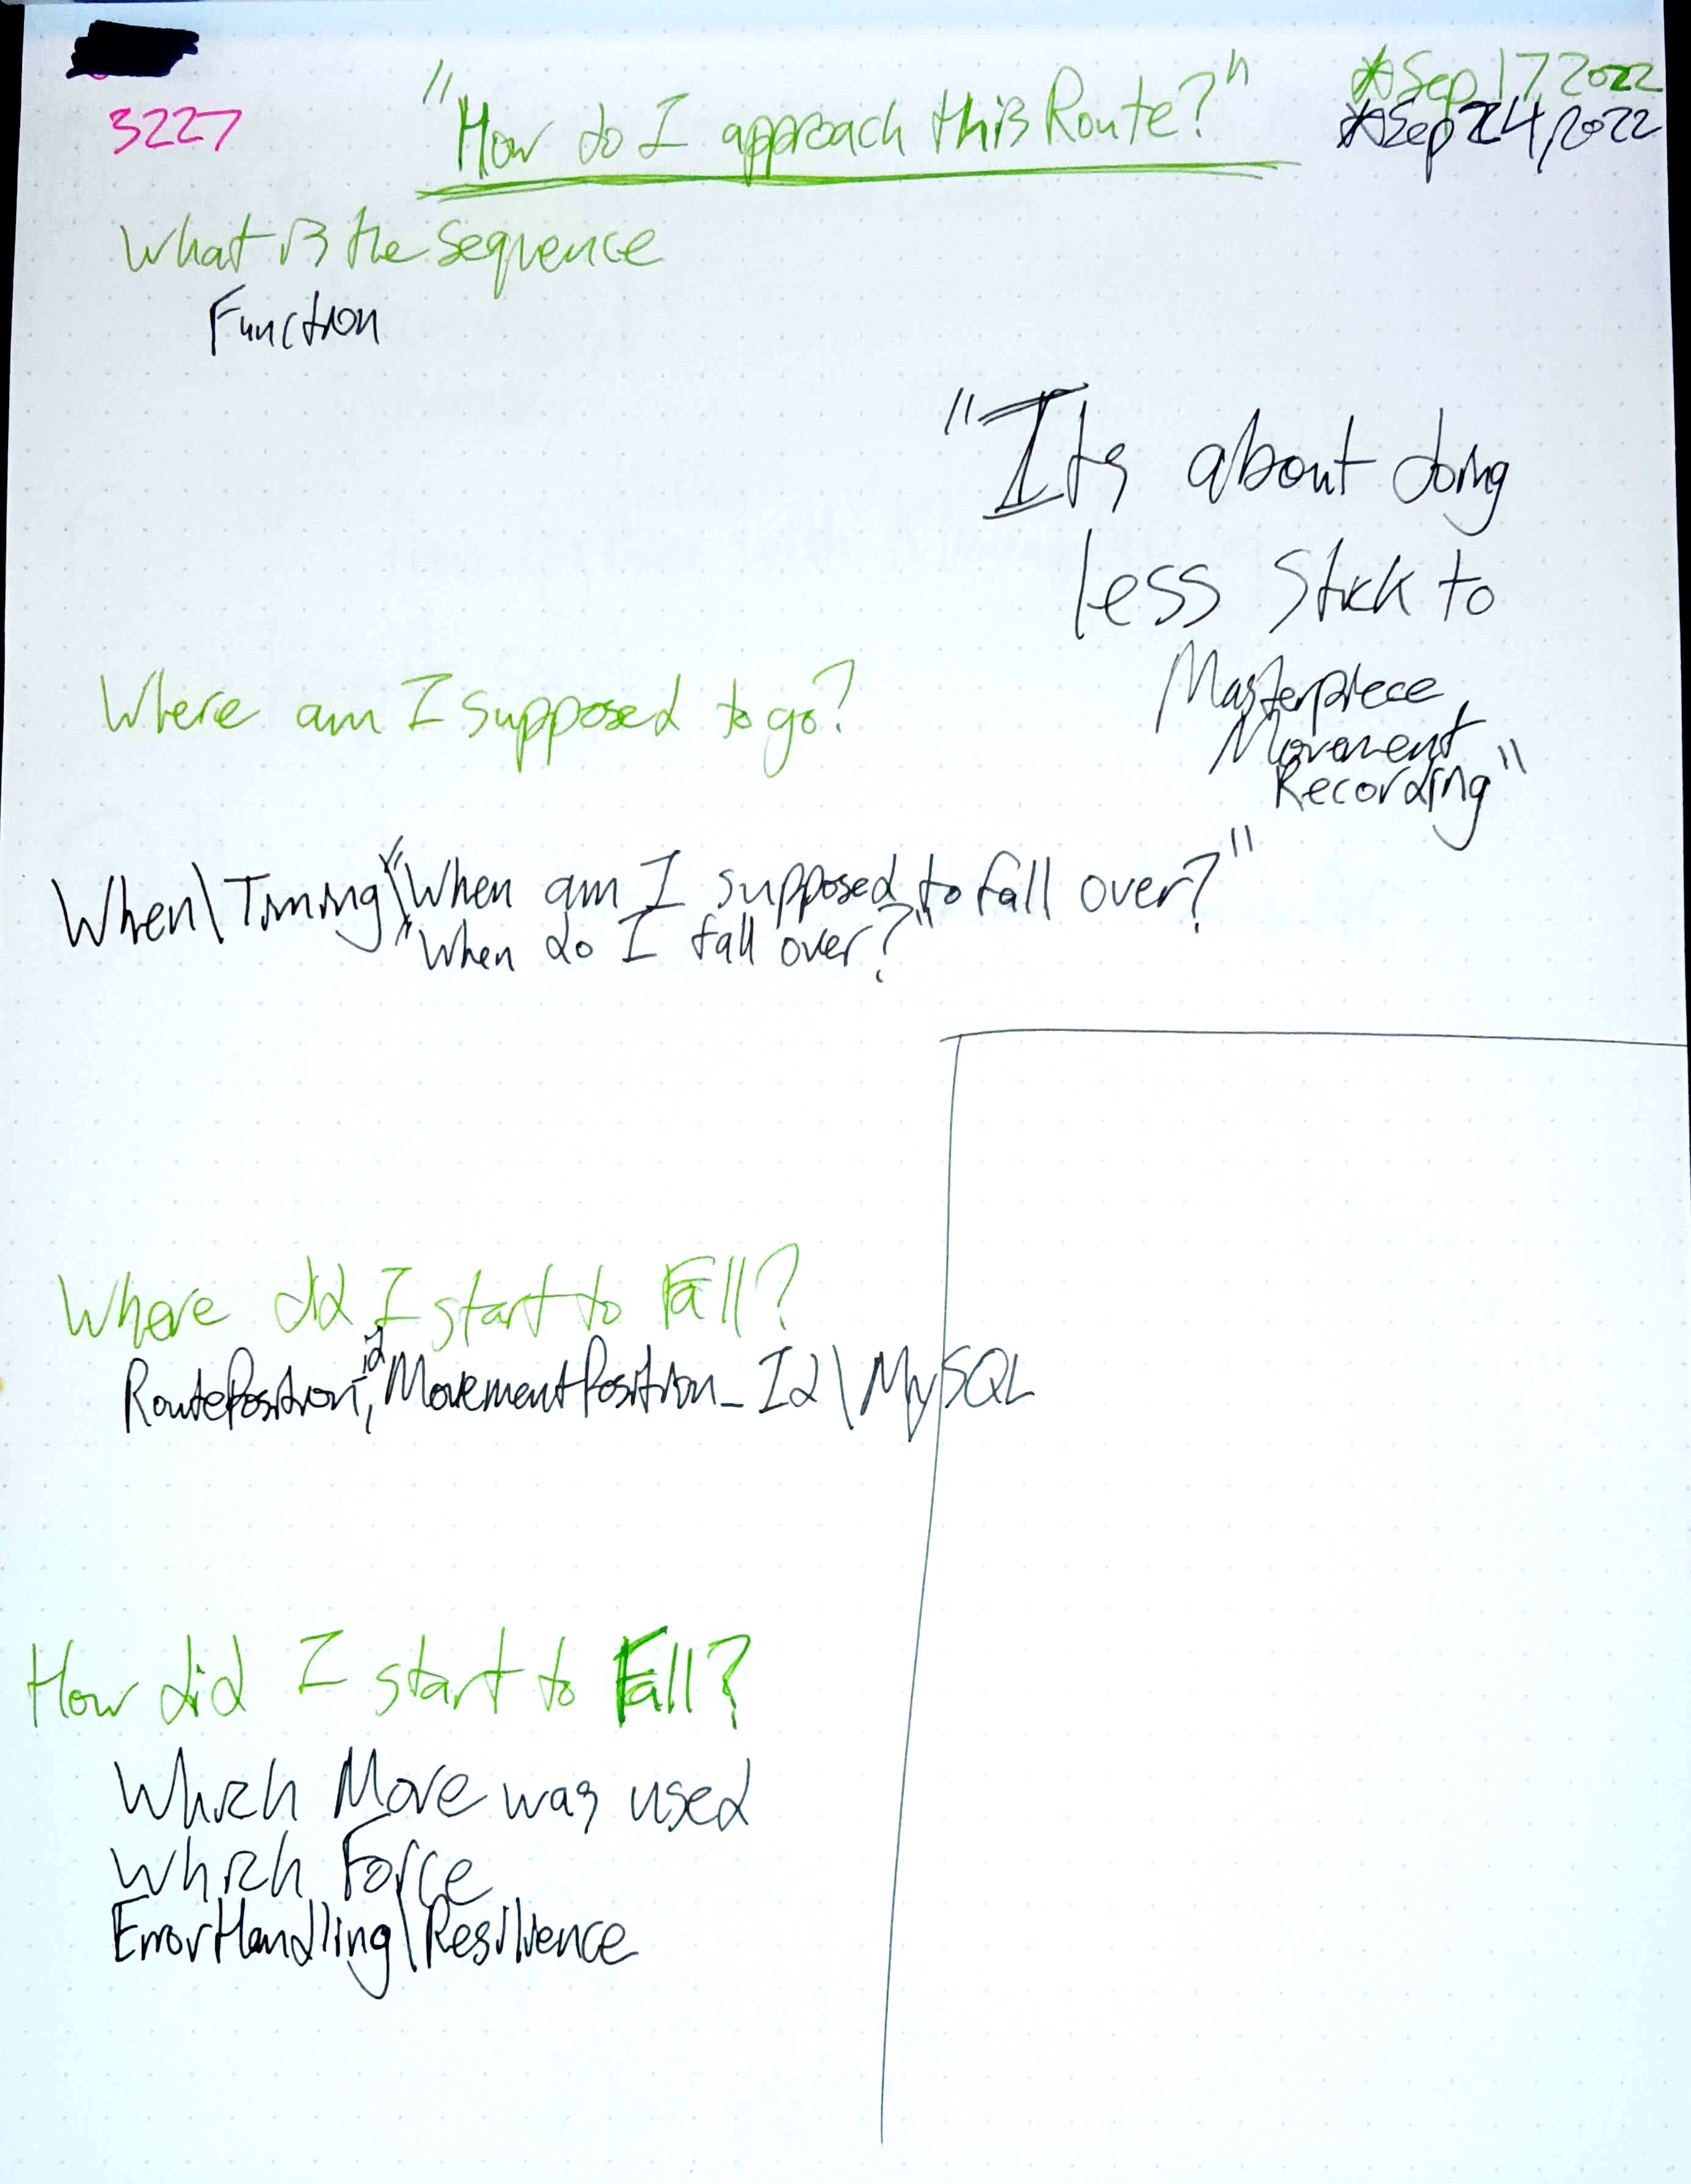 3227
"How do I approach this Route?"
*Sep 17 2022
*Sep 24, 2022
What is the sequence
Function
"Its about doing
less stick to
Masterpiece
Movement
Recording"
Where am I supposed to go?
When\Timing\"When am I supposed to fall over?"
"When do I fall over?"
Where did I start to Fall?
RoutePosition_id, MovementPosition_Id\MySQL
How did I start to Fall?
Which Move was used
Which Force
ErrorHandling\Resilience